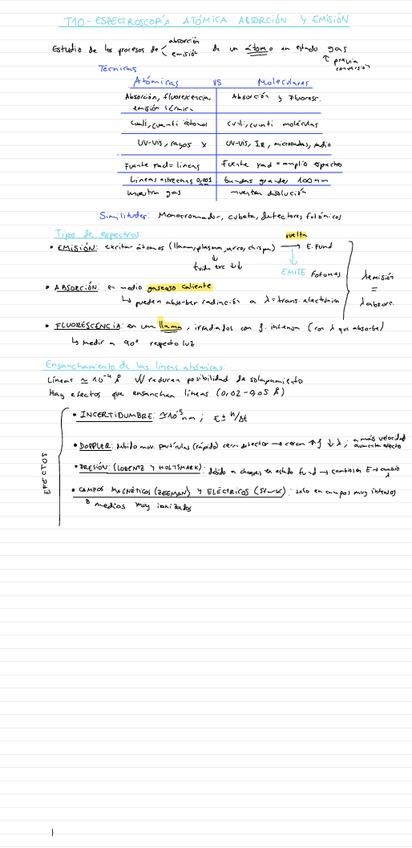 T10 - ESPECTROSCOPÍA ATÓMICA ABSORCIÓN Y EMISIÓN
Estudio de los procesos de absorción emisión de un átomo en estado gas
previa conversión
Técnicas
Atómicas vs Moleculares
Absorción, fluorescencia, emisión térmica Absorción y Fluoresc.
cuali, cuanti átomos cuali, cuanti moléculas
UV-VIS, rayos X UV-VIS, IR, microondas, radio
Fuente rad = líneas Fuente rad = amplio espectro
Líneas estrechas 0,001 bandas grandes 100 nm
muestra gas muestra disolución
Similitudes: Monocromador, cubeta, detectores fotónicos
Tipos de espectros: vuelta
• EMISIÓN: excitar átomos (llama, plasma, arco, chispa) → E. Fund
EMITE Fotones
• ABSORCIÓN: en medio gaseoso caliente
↳ pueden absorber radiación a λ = trans electrónica
λ emisión = λ absorc.
• FLUORESCENCIA: en una llama, irradiados con f. intensa (con λ que absorbe)
↳ medir a 90° respecto luz
Ensanchamiento de las líneas atómicas
Líneas ≃ 10⁻⁴ Å reducen posibilidad de solapamiento
Hay efectos que ensanchan líneas (0,02 - 0,05 Å)
EFECTOS
• INCERTIDUMBRE: ≃ 10⁻⁵ nm;
• DOPPLER: debido mov. partículas (rápido) cerca detector → cerca ↑ f ↓ λ; a más velocidad aumenta efecto
• PRESIÓN: (LORENTZ Y HOLTSMARK): debido a choques en estado fund → cambios en E → cambio λ
• CAMPOS MAGNÉTICOS (ZEEMAN) Y ELÉCTRICOS (Stark): solo en campos muy intensos
medios muy ionizados